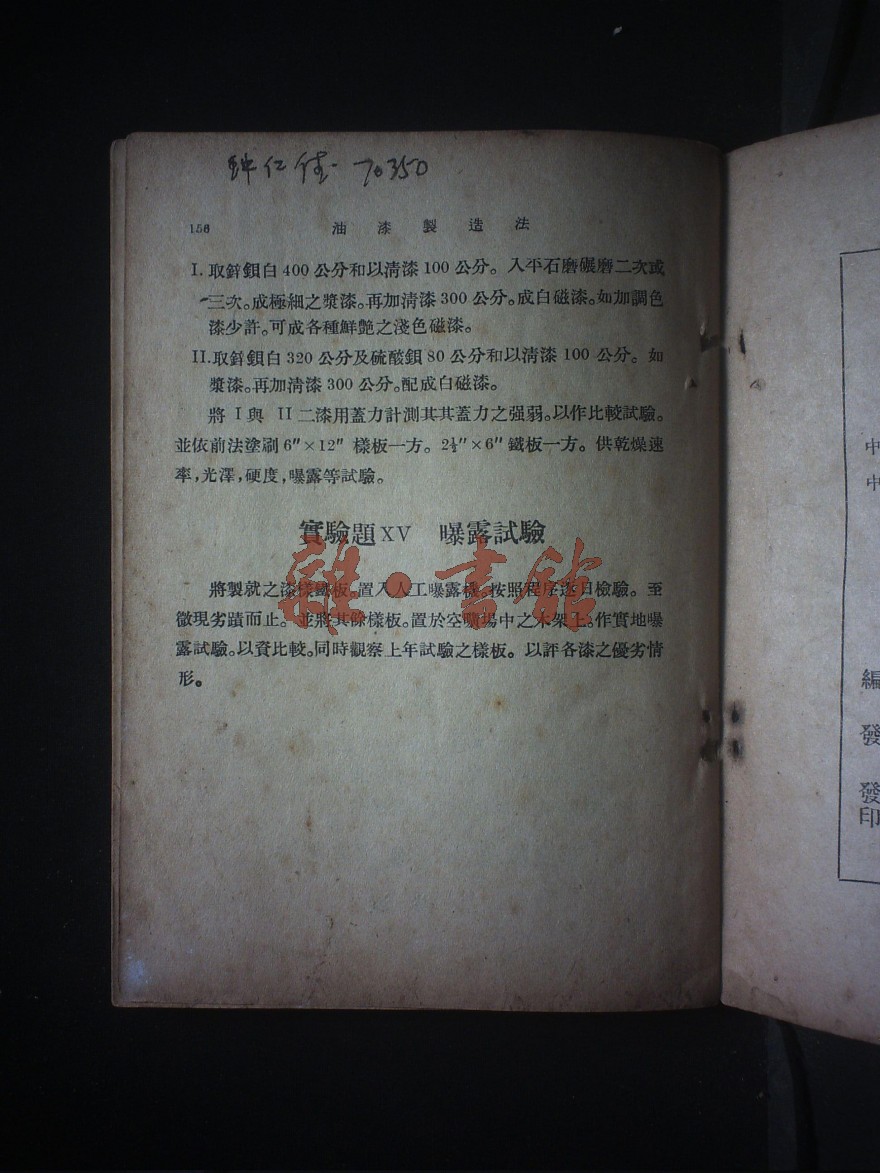 仁 70350
156 油漆製造法
I. 取鋅鋇白 400 公分和以清漆 100 公分。入平石磨碾磨二次或
三次。成極細之漿漆。再加清漆 300 公分。成白磁漆。如加調色
漆少許。可成各種鮮艷之淺色磁漆。
II. 取鋅鋇白 320 公分及硫酸鋇 80 公分和以清漆 100 公分。如
漿漆。再加清漆 300 公分。配成白磁漆。
將 I 與 II 二漆用蓋力計測其其蓋力之强弱。以作比較試驗。
並依前法塗刷 6″×12″ 樣板一方。2½″×6″ 鐵板一方。供乾燥速
率,光澤,硬度,曝露等試驗。
實驗題 XV 曝露試驗
將製就之漆樣鐵板。置入人工曝露機。按照程序逐日檢驗。至
微現劣蹟而止。並將其餘樣板。置於空曠場中之木架上。作實地曝
露試驗。以資比較。同時觀察上年試驗之樣板。以評各漆之優劣情
形。
雜·書館
中
中
編
發
發
印